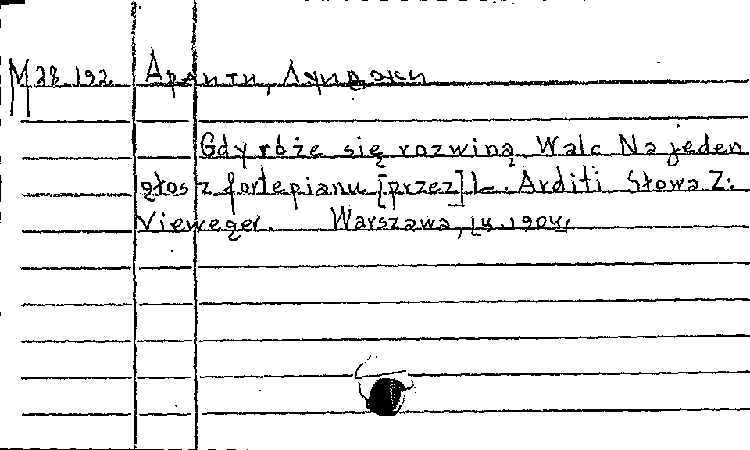 М 28.192 Ардити, Луиджи
Gdy róże się rozwiną Walc Na jeden
głos z fortepianu [przez] L. Arditi Słowa Z:
Vieweger. Warszawa, 1904.